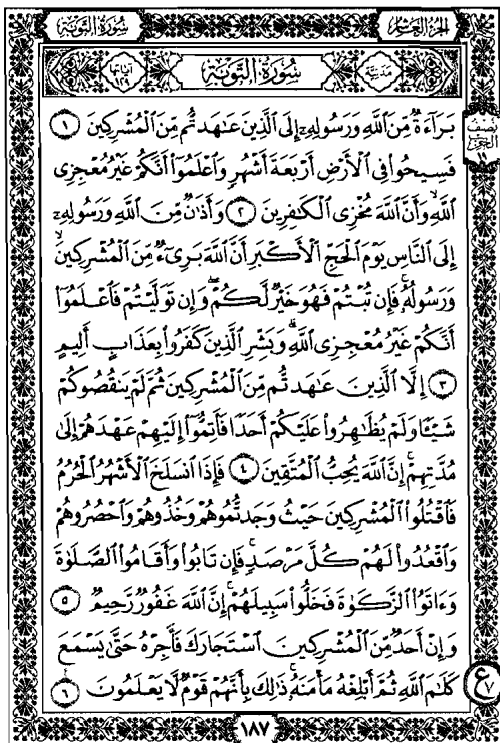 سُورَةُ التَّوۡبَةِ
الجُزْءُ العَاشِرُ
سُورَةُ التَّوۡبَةِ
مَدَنِيَّة
آيَاتُهَا ١٢٩
بَرَآءَةٌ مِّنَ ٱللَّهِ وَرَسُولِهِۦٓ إِلَى ٱلَّذِينَ عَـٰهَدتُّم مِّنَ ٱلۡمُشۡرِكِينَ ١
فَسِيحُواْ فِي ٱلۡأَرۡضِ أَرۡبَعَةَ أَشۡهُرٖ وَٱعۡلَمُوٓاْ أَنَّكُمۡ غَيۡرُ مُعۡجِزِي
ٱللَّهِ وَأَنَّ ٱللَّهَ مُخۡزِي ٱلۡكَـٰفِرِينَ ٢ وَأَذَٰنٞ مِّنَ ٱللَّهِ وَرَسُولِهِۦٓ
إِلَى ٱلنَّاسِ يَوۡمَ ٱلۡحَجِّ ٱلۡأَكۡبَرِ أَنَّ ٱللَّهَ بَرِيٓءٞ مِّنَ ٱلۡمُشۡرِكِينَ
وَرَسُولُهُۥۚ فَإِن تُبۡتُمۡ فَهُوَ خَيۡرٞ لَّكُمۡۖ وَإِن تَوَلَّيۡتُمۡ فَٱعۡلَمُوٓاْ
أَنَّكُمۡ غَيۡرُ مُعۡجِزِي ٱللَّهِۗ وَبَشِّرِ ٱلَّذِينَ كَفَرُواْ بِعَذَابٍ أَلِيمٍ
٣ إِلَّا ٱلَّذِينَ عَـٰهَدتُّم مِّنَ ٱلۡمُشۡرِكِينَ ثُمَّ لَمۡ يَنقُصُوكُمۡ
شَيۡـٔٗا وَلَمۡ يُظَـٰهِرُواْ عَلَيۡكُمۡ أَحَدٗا فَأَتِمُّوٓاْ إِلَيۡهِمۡ عَهۡدَهُمۡ إِلَىٰ
مُدَّتِهِمۡۚ إِنَّ ٱللَّهَ يُحِبُّ ٱلۡمُتَّقِينَ ٤ فَإِذَا ٱنسَلَخَ ٱلۡأَشۡهُرُ ٱلۡحُرُمُ
فَٱقۡتُلُواْ ٱلۡمُشۡرِكِينَ حَيۡثُ وَجَدتُّمُوهُمۡ وَخُذُوهُمۡ وَٱحۡصُرُوهُمۡ
وَٱقۡعُدُواْ لَهُمۡ كُلَّ مَرۡصَدٖۚ فَإِن تَابُواْ وَأَقَامُواْ ٱلصَّلَوٰةَ
وَءَاتَوُاْ ٱلزَّكَوٰةَ فَخَلُّواْ سَبِيلَهُمۡۚ إِنَّ ٱللَّهَ غَفُورٞ رَّحِيمٞ ٥
وَإِنۡ أَحَدٞ مِّنَ ٱلۡمُشۡرِكِينَ ٱسۡتَجَارَكَ فَأَجِرۡهُ حَتَّىٰ يَسۡمَعَ
كَلَـٰمَ ٱللَّهِ ثُمَّ أَبۡلِغۡهُ مَأۡمَنَهُۥۚ ذَٰلِكَ بِأَنَّهُمۡ قَوۡمٞ لَّا يَعۡلَمُونَ ٦
نِصۡف
الحِزۡب
١٩
ع
٧
١٨٧